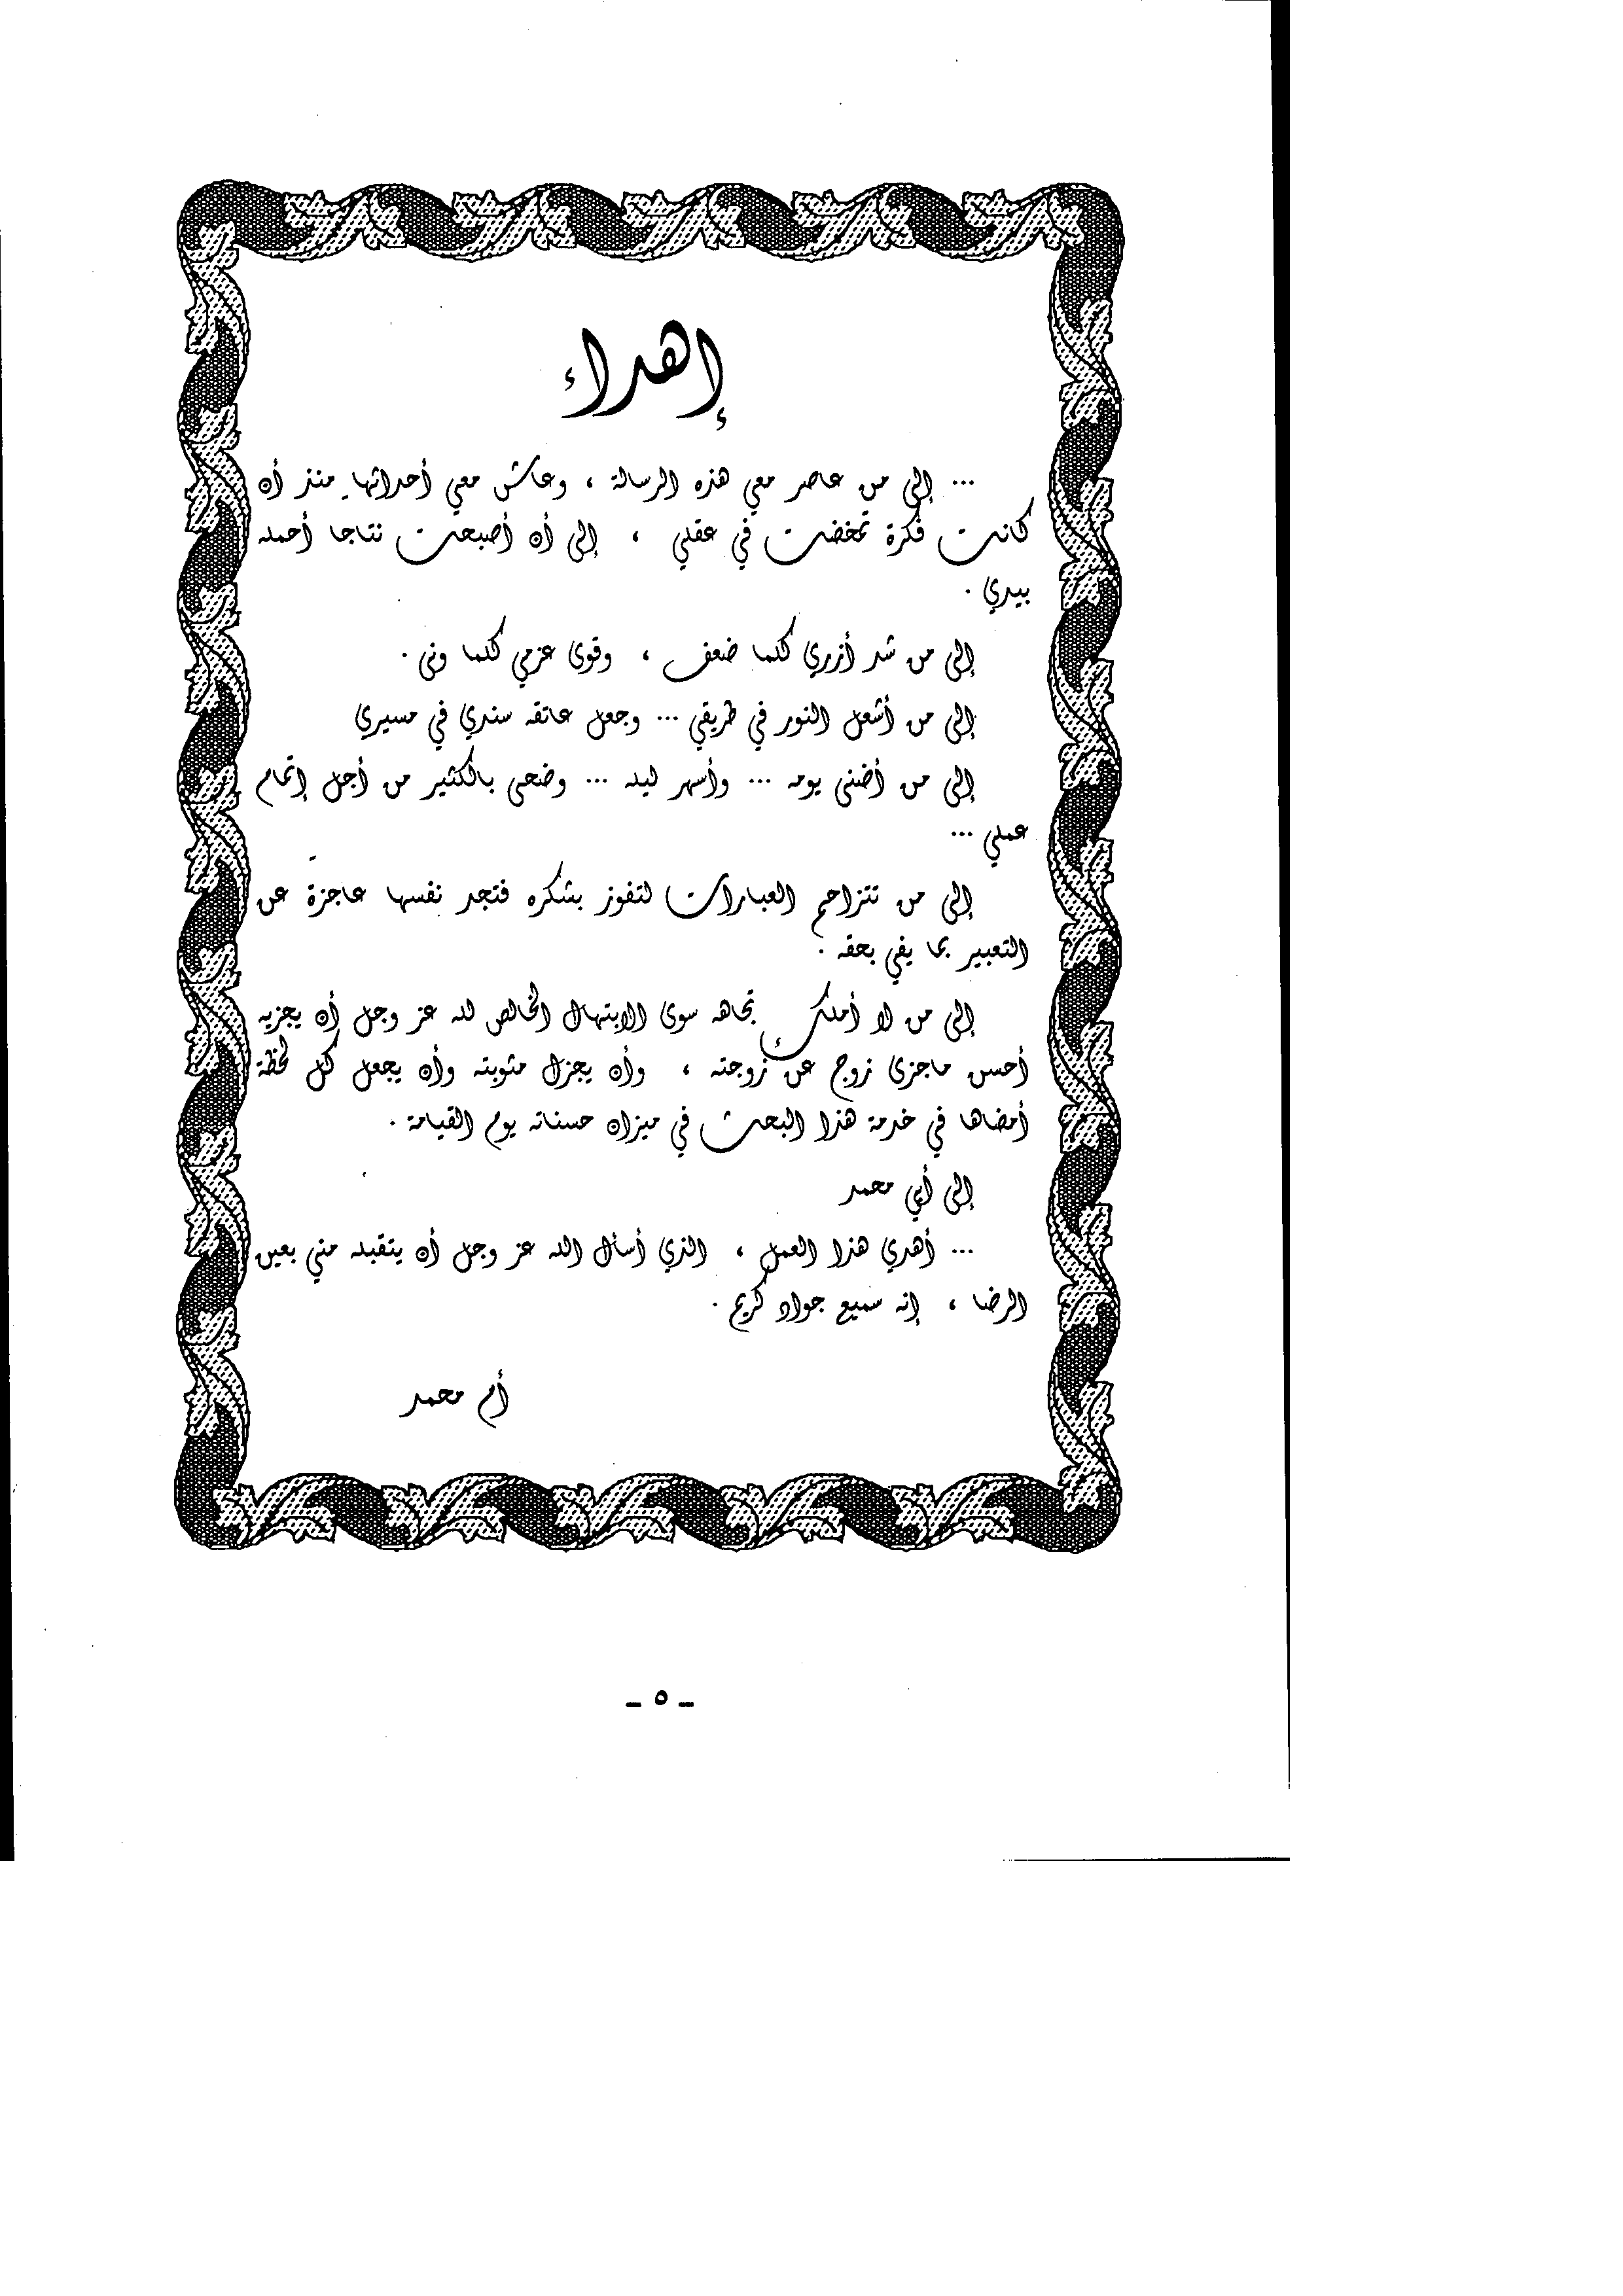 إهداء
... إلى من عاصر معي هذه الرسالة ، وعاش معي أحداثها منذ أن
كانت فكرة تمخضت في عقلي ، إلى أن أصبحت نتاجا أحمله
بيدي .
إلى من شد أزري كلما ضعف ، وقوى عزمي كلما ونى .
إلى من أشعل النور في طريقي ... وجعل عاتقه سندي في مسيري
إلى من أضنى يومه ... وأسهر ليله ... وضحى بالكثير من أجل إتمام
عملي ...
إلى من تتزاحم العبارات لتفوز بشكره فتجد نفسها عاجزة عن
التعبير بما يفي بحقه .
إلى من لا أملك تجاهه سوى الابتهال الخالص لله عز وجل أن يجزيه
أحسن ماجزى زوج عن زوجته ، وأن يجزل مثوبته وأن يجعل كل لحظة
أمضاها في خدمة هذا البحث في ميزان حسناته يوم القيامة .
إلى أبي محمد
... أهدي هذا العمل ، الذي أسأل الله عز وجل أن يتقبله مني بعين
الرضا ، إنه سميع جواد كريم .
أم محمد
- ٥ -